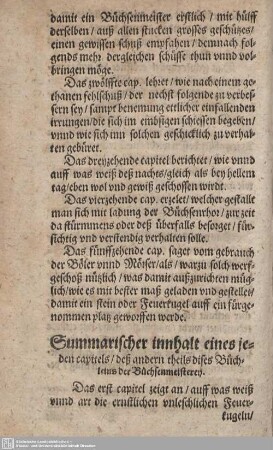 damit ein Büchsenmeister erstlich / mit hülff
derselben / auß allen stucken grosses geschützes /
einen gewissen schuß empfahen / demnach
folgends mehr dergleichen schüsse thun vnnd vol-
bringen möge.
Das zwölffte cap. lehret / wie nach einem ge-
thanen fehlschuß / der nechst folgende zu verbes-
sern sey / sampt benemung ettlicher einfallenden
irrungen / die sich im embsigen schiessen begeben /
vnnd wie sich inn solchen geschicklich zu verhal-
ten gebüret.
Das dreyzehende capitel berichtet / wie vnnd
auff was weiß deß nachts / gleich als bey hellem
tag / eben wol vnd gewiß geschossen wirdt.
Das vierzehende cap. erzelet / welcher gestalt
man sich mit ladung der Büchsenrhor / zur zeit
da stürmmens oder deß überfalls besorget / für-
sichtig vnd verstendig verhalten solle.
Das fünffzehende cap. saget vom gebrauch
der Böler vnnd Mörser / als / warzu solch werf-
geschoß nützlich / was damit außzurichten müg-
lich / wie es mit bester maß geladen vnd gestellet /
damit ein stein oder Feuerkugel auff ein fürge-
nommen platz geworffen werde.
Summarischer innhalt eines je-
den capitels / deß andern theils dises Büch-
leins der Büchsenmeisterey.
Das erst capitel zeigt an / auff was weiß
vnnd art die ernstlichen vnleschlichen Feuer-
kugeln /